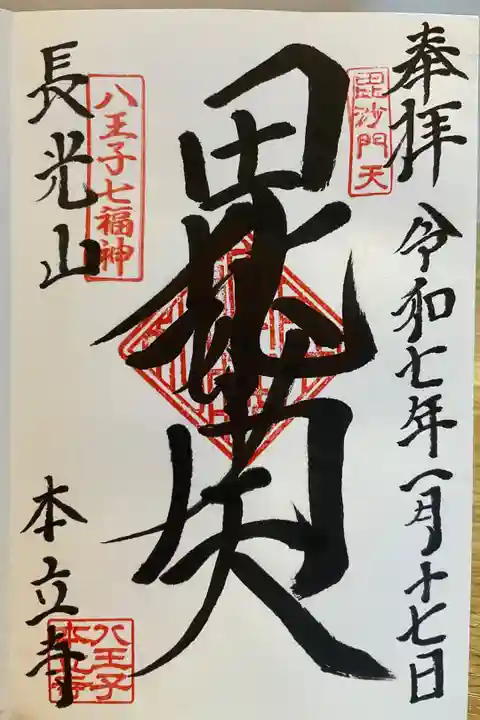 奉拝
毘沙門天
令和七年一月十七日
毘沙門天
八王子七福神
長光山
本立寺
八王子
本立寺